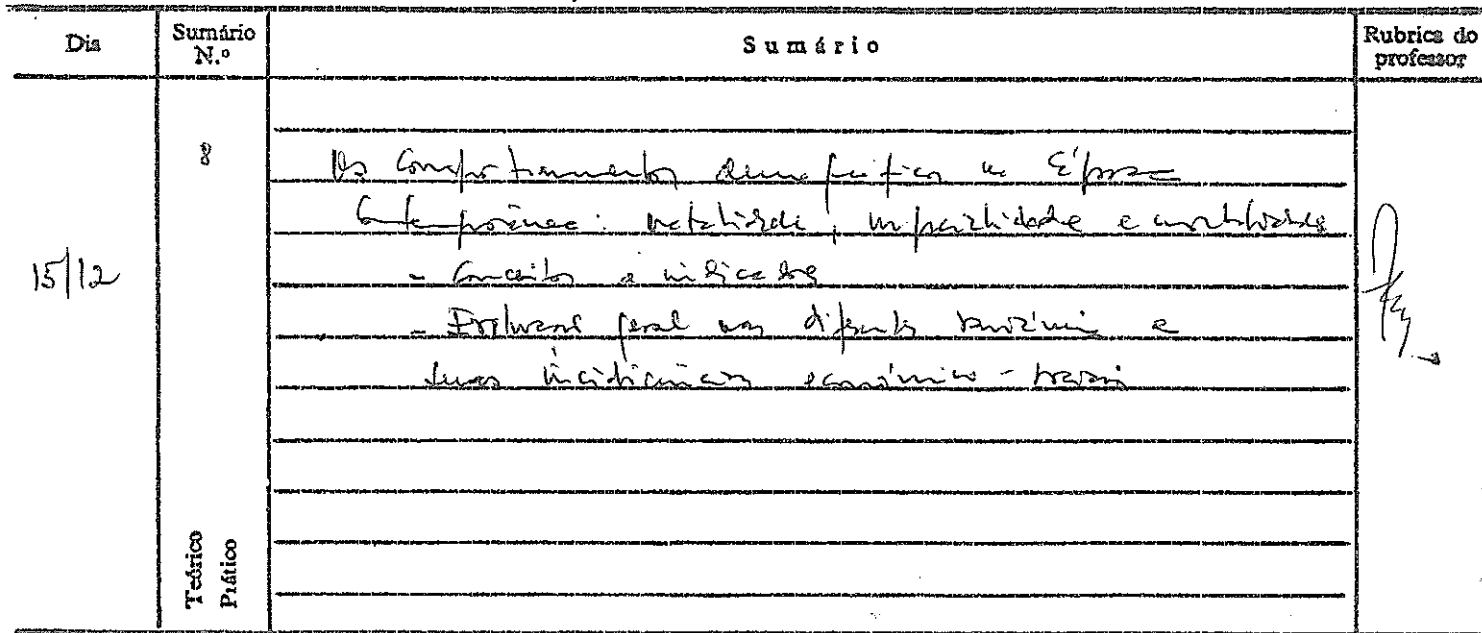 Dia
Sumário N.º
Sumário
Rubrica do professor
15/12
8
Os Comportamentos demográficos na Época
Contemporânea: natalidade, nupcialidade e mortalidade
- Conceitos e indicadores
- Evolução geral nos diferentes e
suas incidências económico-sociais
Teórico
Prático